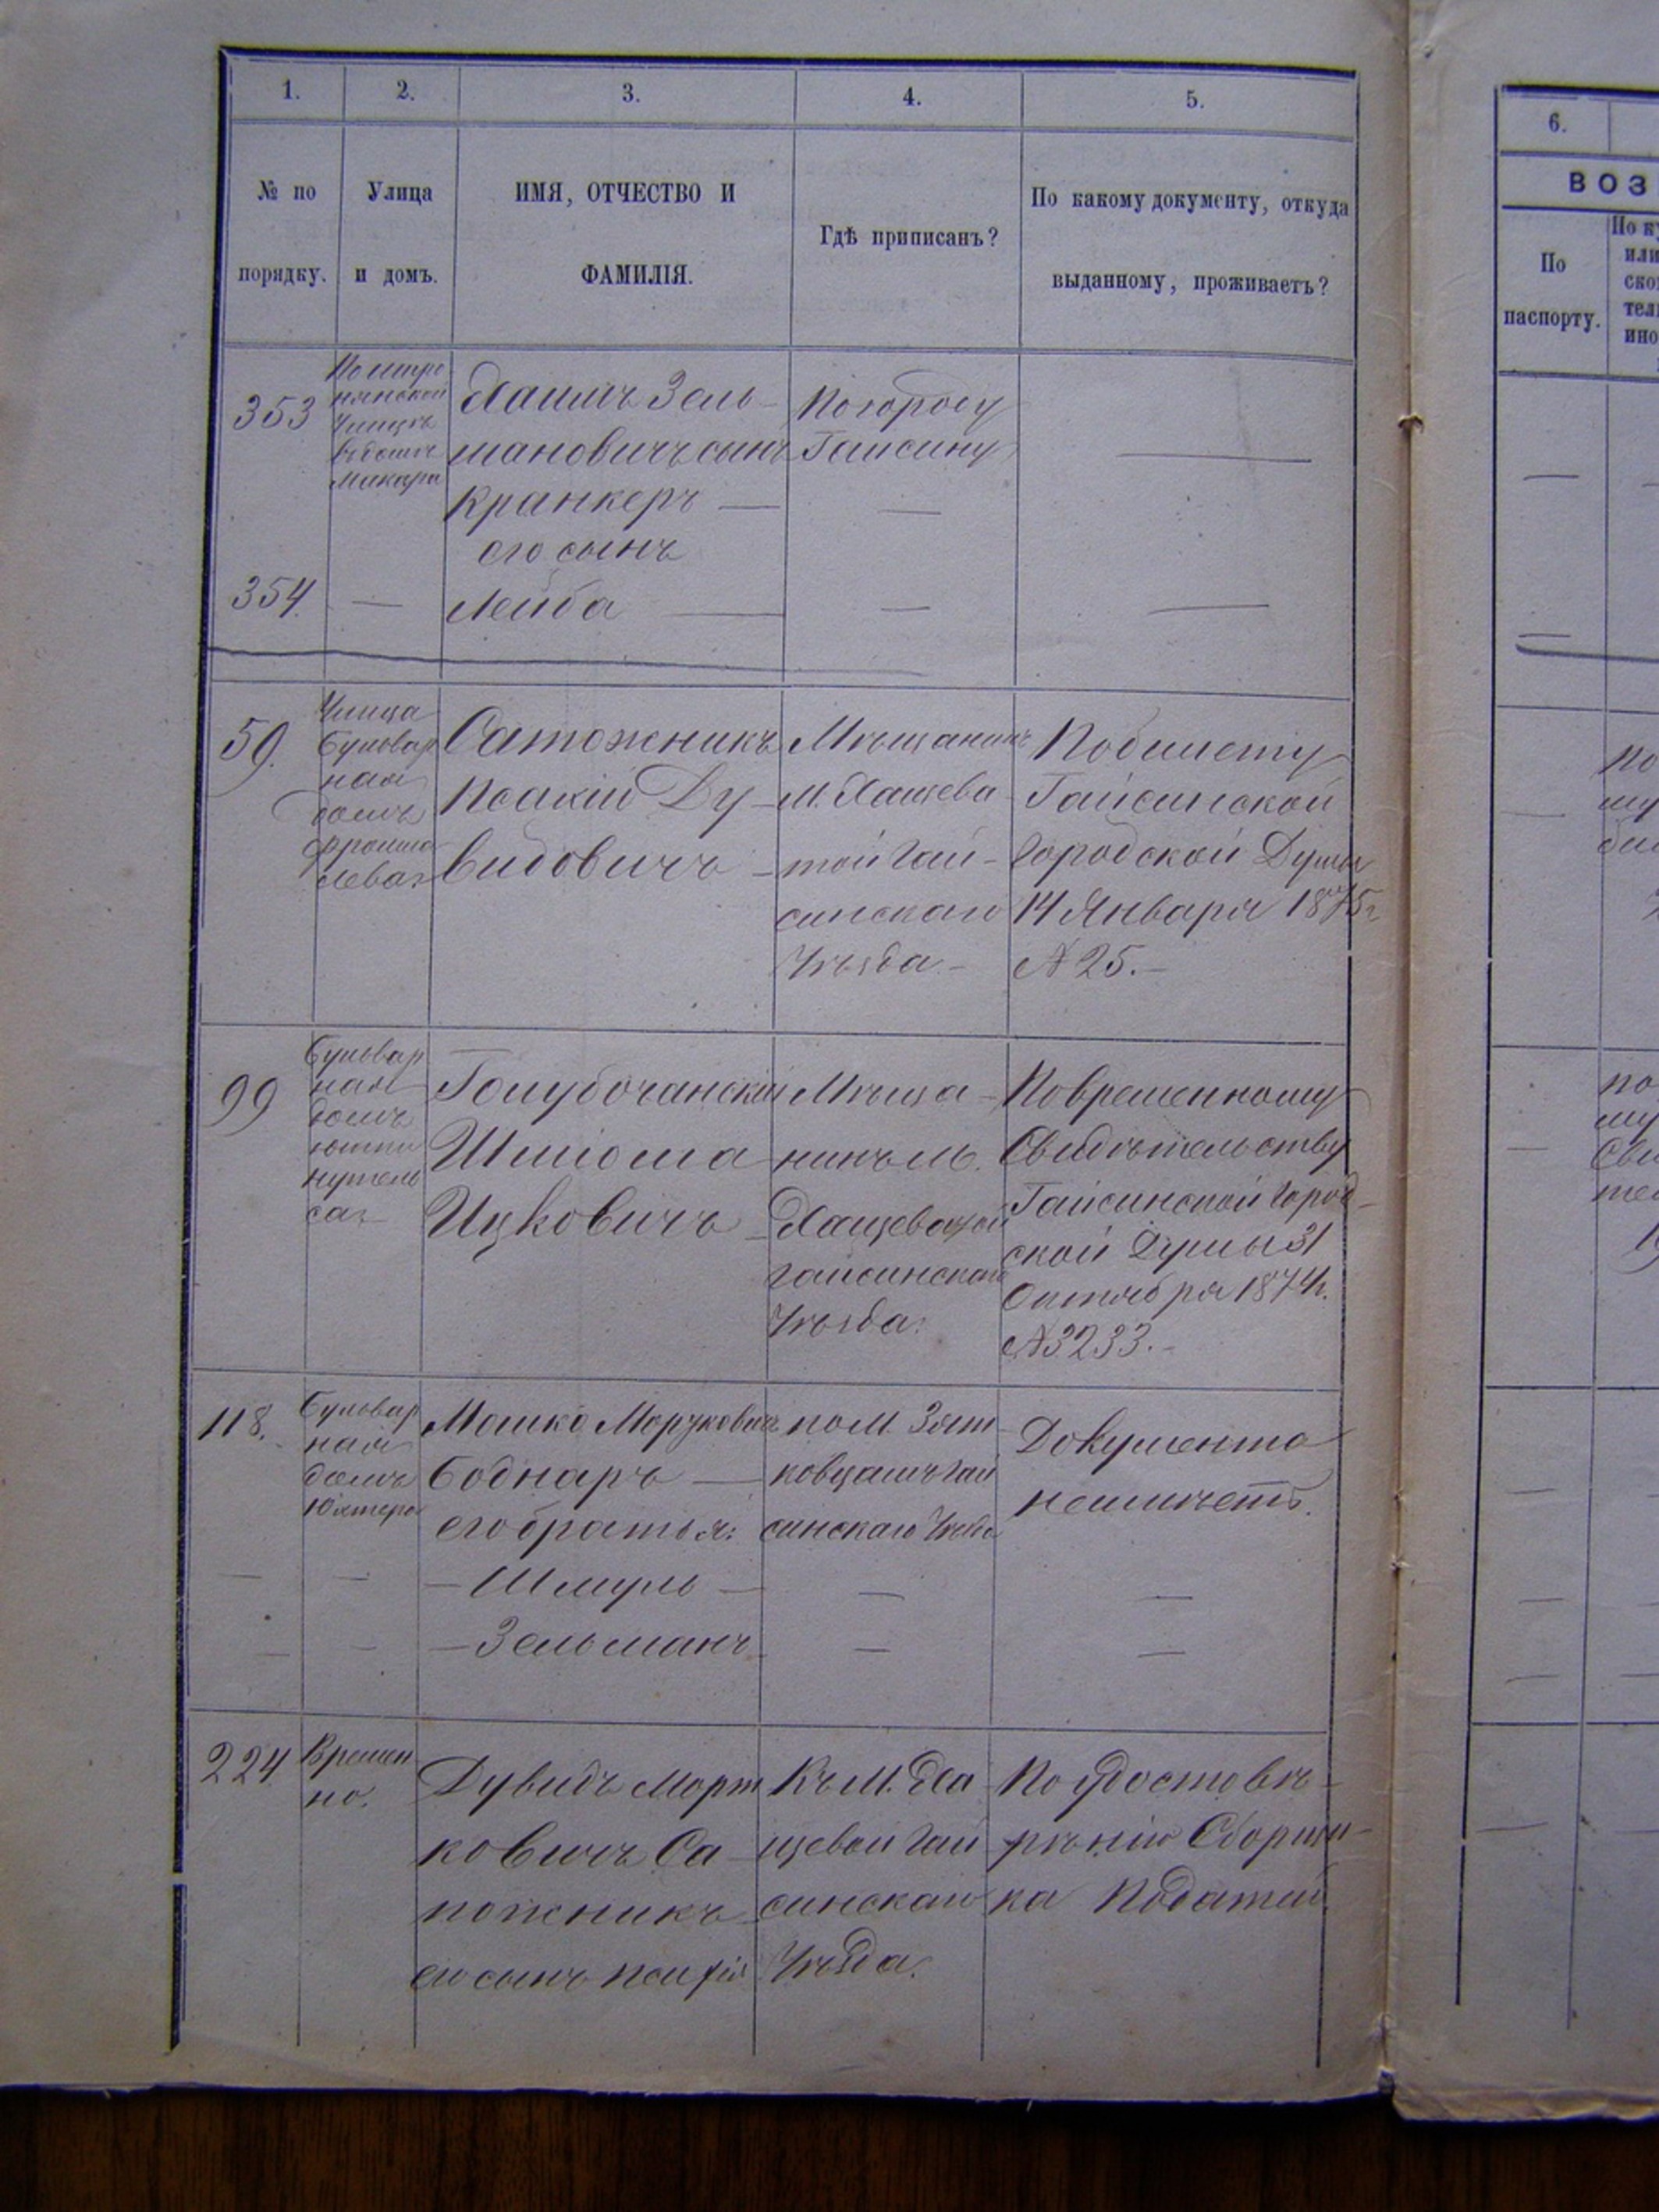 1. 2. 3. 4. 5.
№ по порядку.
Улица и домъ.
ИМЯ, ОТЧЕСТВО И
ФАМИЛІЯ.
Гдѣ приписанъ?
По какому документу, откуда
выданному, проживаетъ?
353
улицѣ
въ домѣ
Макара
Хаимъ Зель-
мановичъ сынъ
Кранкеръ —
его сынъ
По городу
Гайсину
—
—
354. —
Лейба —
—
—
59.
Улица
Бульвар
ная
домъ
Сапожникъ
Ду-
видовичъ
Мѣщанинъ
м. Хащева-
той Гай-
синскаго
Уѣзда
По билету
Гайсинской
Городской Думы
14 Января 1875 г.
№ 25.
99
Бульвар
ная
домъ
Голубочанскій
Шліома
Ицковичъ
Мѣща-
нинъ м.
Хащеватой
Гайсинскаго
Уѣзда.
По временному
Свидѣтельству
Гайсинской Город-
ской Думы 31
Октября 1874 г.
№ 3233.
118.
Бульвар
ная
домъ
Юхтера
Мошко Мордковичъ
Боднаръ —
его братья:
— Шмуль —
— Зельманъ
по м. Зят-
ковцамъ Гай
синскаго Уѣзда
—
—
Документа
неимѣетъ.
—
—
224.
Времен
но.
Дувидъ Морт
ковичъ Са-
пожникъ
его сынъ
Къ м. Ха-
щевой Гай
синскаго
Уѣзда.
По удостовѣ-
рѣнію Сборщи-
ка Податей.
6.
ВОЗ
По
паспорту.
По
или
ско
тел
ино
по
му
би
по
му
Сви
те